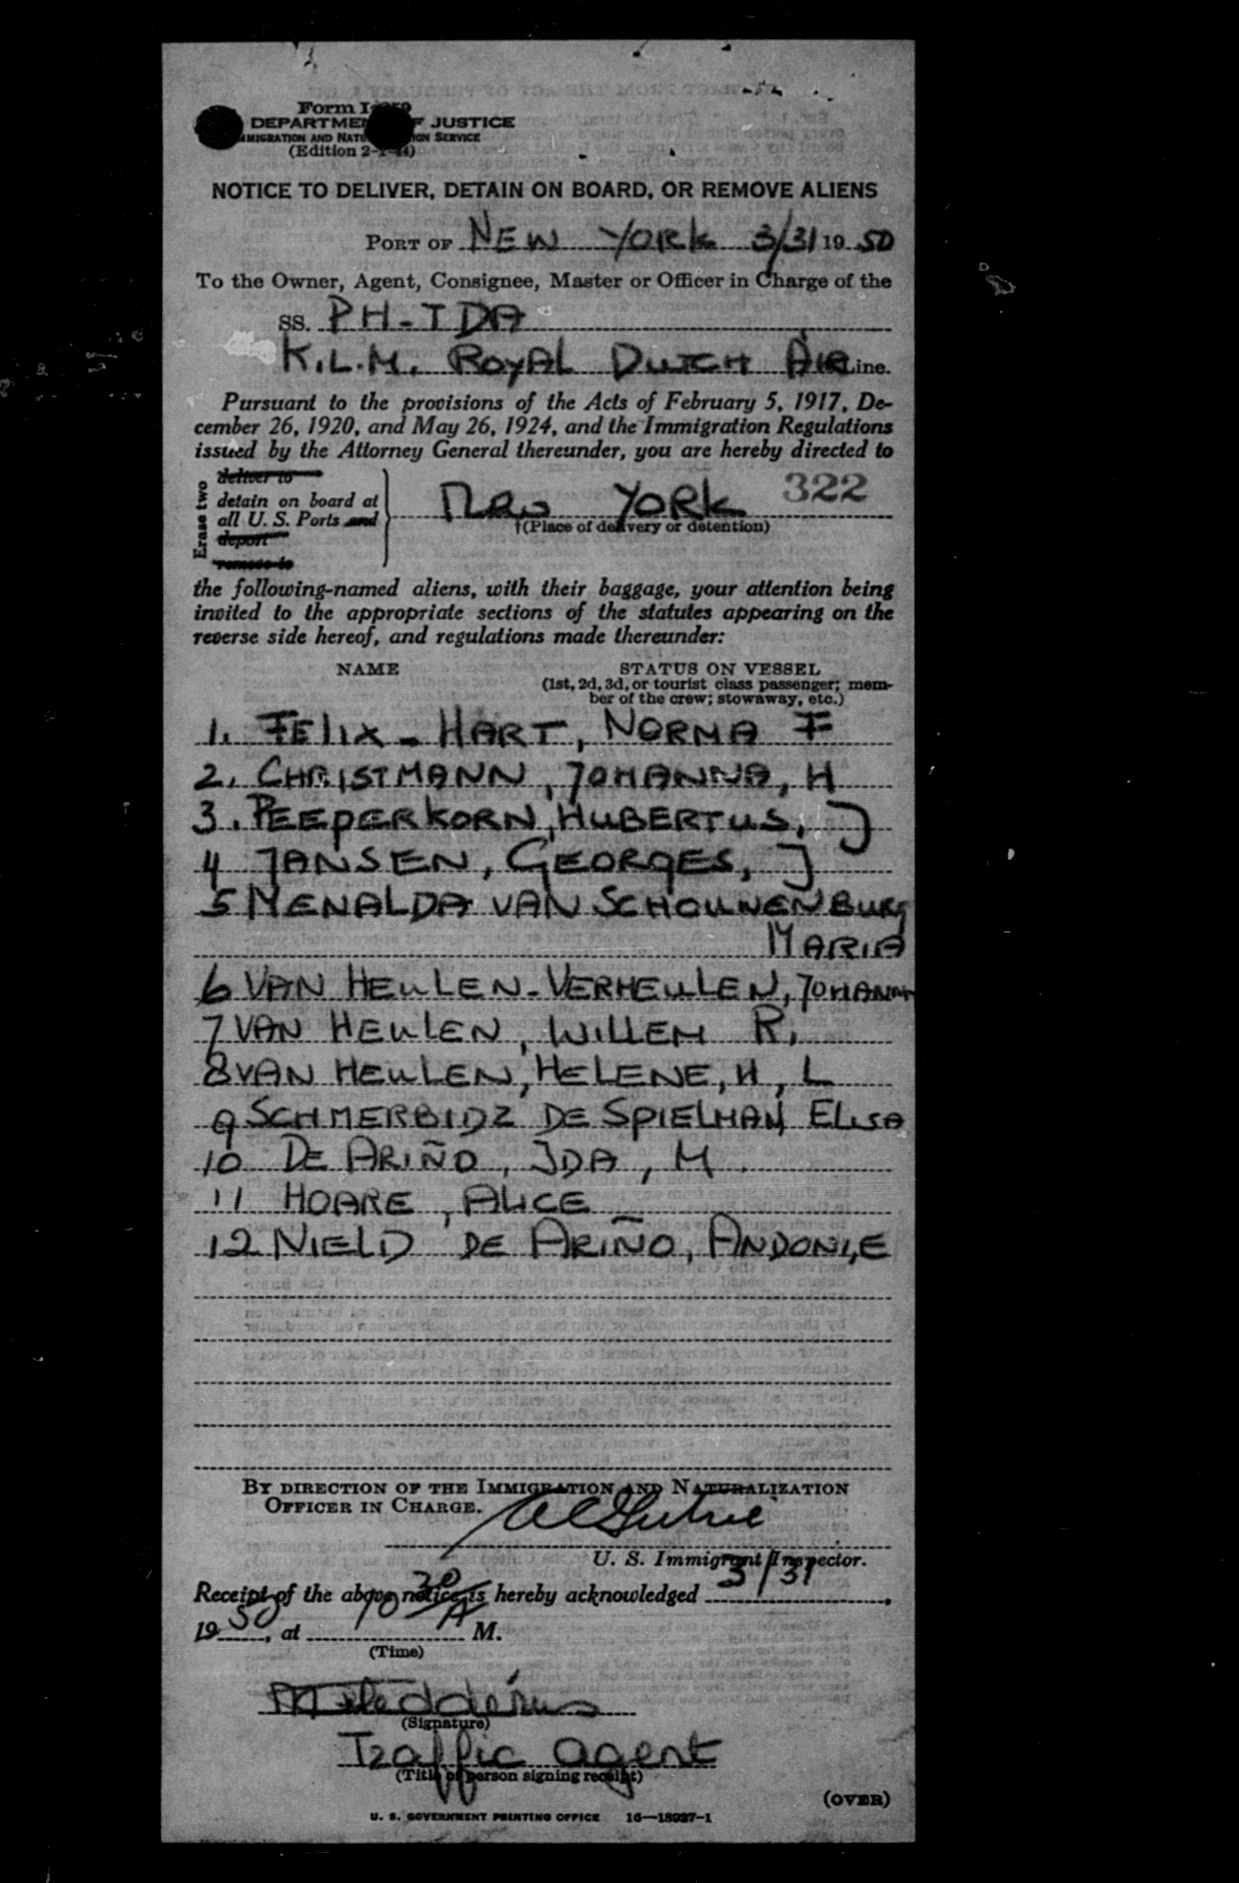 Form I-259
DEPARTMENT OF JUSTICE
IMMIGRATION AND NATURALIZATION SERVICE
(Edition 2-1-44)
NOTICE TO DELIVER, DETAIN ON BOARD, OR REMOVE ALIENS
PORT OF NEW YORK 3/31 19 50
To the Owner, Agent, Consignee, Master or Officer in Charge of the
SS. PH-TDA
K.L.M. ROYAL DUTCH AIR Line.
Pursuant to the provisions of the Acts of February 5, 1917, De-
cember 26, 1920, and May 26, 1924, and the Immigration Regulations
issued by the Attorney General thereunder, you are hereby directed to
Erase two
deliver to
detain on board at
all U. S. Ports and
deport
remove to
New YORK 322
†(Place of delivery or detention)
the following-named aliens, with their baggage, your attention being
invited to the appropriate sections of the statutes appearing on the
reverse side hereof, and regulations made thereunder:
NAME STATUS ON VESSEL
(1st, 2d, 3d, or tourist class passenger; mem-
ber of the crew; stowaway, etc.)
1. FELIX - HART, NORMA F
2. CHRISTMANN, JOHANNA, H
3. PEEPERKORN, HUBERTUS, J
4 JANSEN, GEORGES, J
5 MENALDA VAN SCHOUWENBURG
MARIA
6 VAN HEULEN-VERHEULEN, JOHANNA
7 VAN HEULEN, WILLEM R.
8 VAN HEULEN, HELENE, H, L
9 SCHMERBIDZ DE SPIELMAN, ELISA
10 DE ARIÑO, IDA, M.
11 HOARE, ALICE
12 NIELD DE ARIÑO, ANDONIE
BY DIRECTION OF THE IMMIGRATION AND NATURALIZATION
OFFICER IN CHARGE.
U. S. Immigrant Inspector.
Receipt of the above notice is hereby acknowledged 3/31,
19 50, at 10 30 A M.
(Time)
(Signature)
Traffic agent
(Title of person signing receipt)
(OVER)
U. S. GOVERNMENT PRINTING OFFICE 16—18027-1